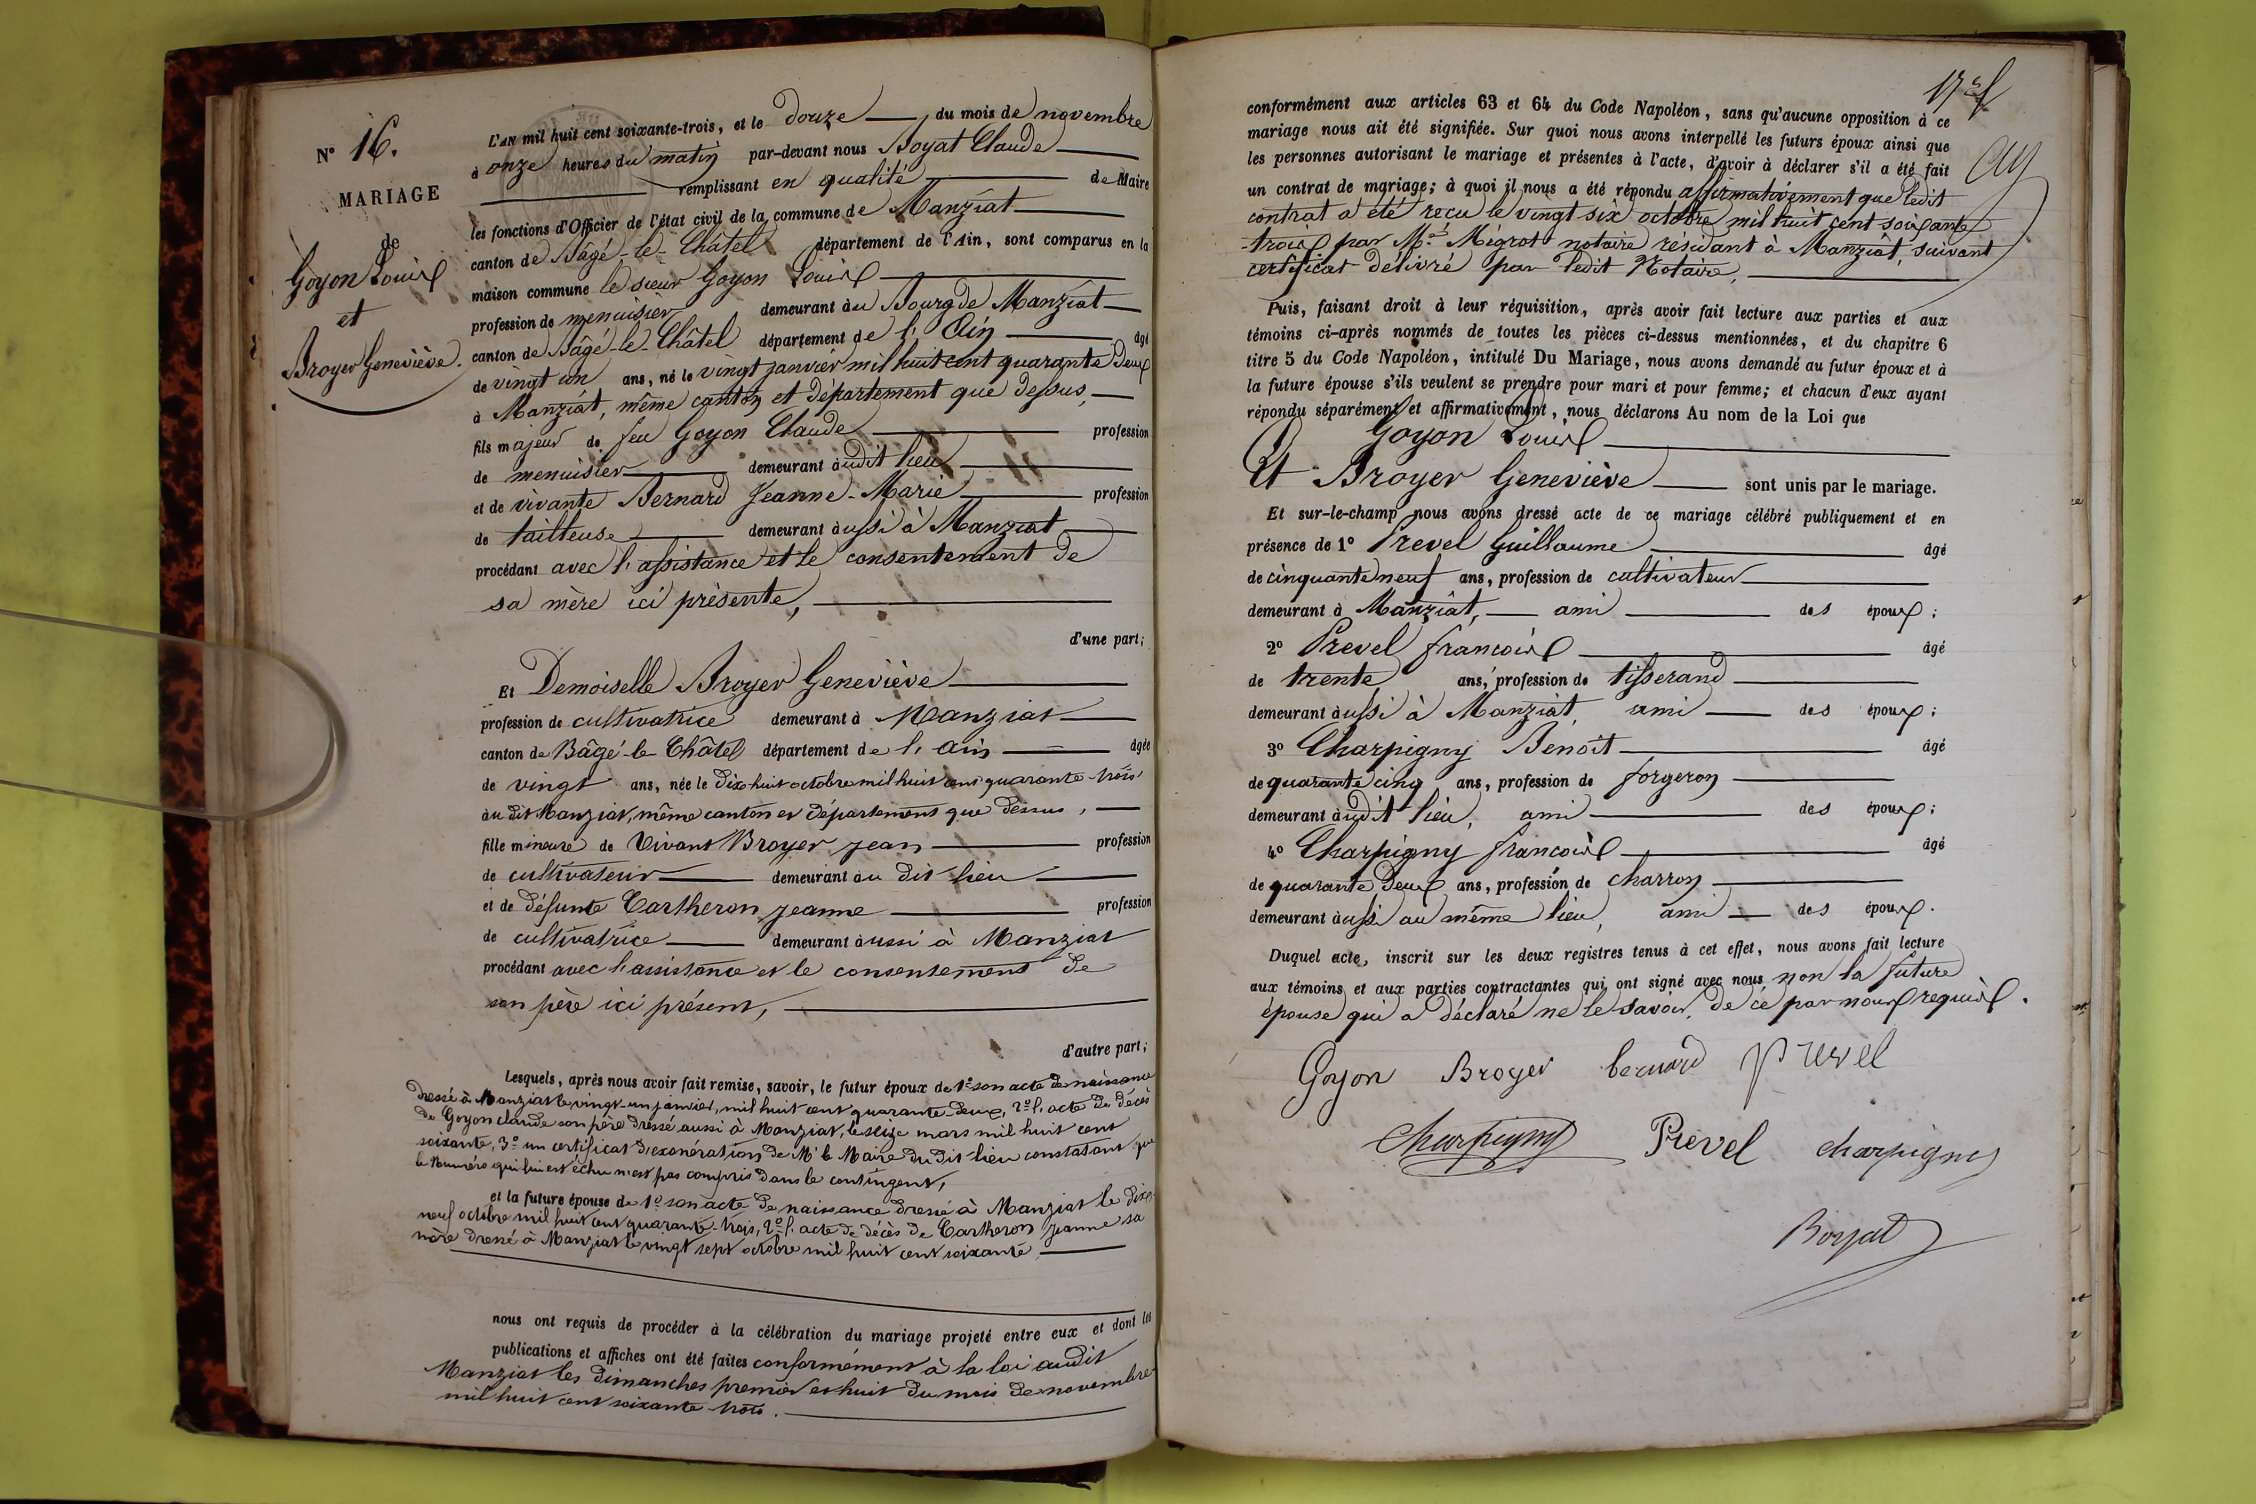 N° 16.
MARIAGE
de
Goyon Louis
et
Broyer Geneviève.
L'AN mil huit cent soixante-trois, et le douze du mois de novembre
à onze heures du matin par-devant nous Boyat Claude
remplissant en qualité de Maire
les fonctions d'Officier de l'état civil de la commune de Manziat
canton de Bâgé-le-Châtel département de l'Ain, sont comparus en la
maison commune le sieur Goyon Louis
profession de menuisier demeurant au Bourg de Manziat
canton de Bâgé-le-Châtel département de l'Ain âgé
de vingt un ans, né le vingt janvier mil huit cent quarante deux
à Manziat, même canton et département que dessus,
fils majeur de feu Goyon Claude profession
de menuisier demeurant audit lieu
et de vivante Bernard Jeanne-Marie profession
de tailleuse demeurant aussi à Manziat
procédant avec l'assistance et le consentement de
sa mère ici présente,
d'une part;
Et Demoiselle Broyer Geneviève
profession de cultivatrice demeurant à Manziat
canton de Bâgé-le-Châtel département de l'Ain âgée
de vingt ans, née le dix huit octobre mil huit cent quarante trois
au dit Manziat, même canton et département que dessus,
fille mineure de Vivant Broyer Jean profession
de cultivateur demeurant au dit lieu
et de défunte Cartheron Jeanne profession
de cultivatrice demeurant aussi à Manziat
procédant avec l'assistance et le consentement de
son père ici présent,
d'autre part;
Lesquels, après nous avoir fait remise, savoir, le futur époux de 1° son acte de naissance
dressé à Manziat le vingt-un janvier, mil huit cent quarante-deux, 2° l'acte de décès
de Goyon Claude son père dressé aussi à Manziat, le seize mars mil huit cent
soixante, 3° un certificat d'exonération de Mr le Maire du dit lieu constatant que
le Numéro qui lui est échu n'est pas compris dans le contingent,
et la future épouse de 1° son acte de naissance dressé à Manziat le dix-
neuf octobre mil huit cent quarante-trois, 2° l'acte de décès de Cartheron Jeanne sa
mère dressé à Manziat le vingt sept octobre mil huit cent soixante
nous ont requis de procéder à la célébration du mariage projeté entre eux et dont les
publications et affiches ont été faites conformément à la loi audit
Manziat les dimanches premier et huit du mois de novembre
mil huit cent soixante trois.
conformément aux articles 63 et 64 du Code Napoléon, sans qu'aucune opposition à ce
mariage nous ait été signifiée. Sur quoi nous avons interpellé les futurs époux ainsi que
les personnes autorisant le mariage et présentes à l'acte, d'avoir à déclarer s'il a été fait
un contrat de mariage; à quoi il nous a été répondu affirmativement que ledit
contrat a été reçu le vingt six octobre mil huit cent soixante
-trois par Me Mégrot notaire résidant à Manziat, suivant
certificat délivré par ledit Notaire,
Puis, faisant droit à leur réquisition, après avoir fait lecture aux parties et aux
témoins ci-après nommés de toutes les pièces ci-dessus mentionnées, et du chapitre 6
titre 5 du Code Napoléon, intitulé Du Mariage, nous avons demandé au futur époux et à
la future épouse s'ils veulent se prendre pour mari et pour femme; et chacun d'eux ayant
répondu séparément et affirmativement, nous déclarons Au nom de la Loi que
Goyon Louis
Et Broyer Geneviève sont unis par le mariage.
Et sur-le-champ nous avons dressé acte de ce mariage célébré publiquement et en
présence de 1° Prevel Guillaume âgé
de cinquante neuf ans, profession de cultivateur
demeurant à Manziat, ami des époux;
2° Prevel François âgé
de trente ans, profession de tisserand
demeurant aussi à Manziat, ami des époux;
3° Charpigny Benoît âgé
de quarante cinq ans, profession de forgeron
demeurant audit lieu, ami des époux;
4° Charpigny François âgé
de quarante deux ans, profession de charron
demeurant aussi au même lieu, ami des époux.
Duquel acte, inscrit sur les deux registres tenus à cet effet, nous avons fait lecture
aux témoins et aux parties contractantes qui ont signé avec nous non la future
épouse qui a déclaré ne le savoir, de ce par nous requis.
Goyon Broyer bernard Prevel
Charpigny Prevel charpigny
Boyat